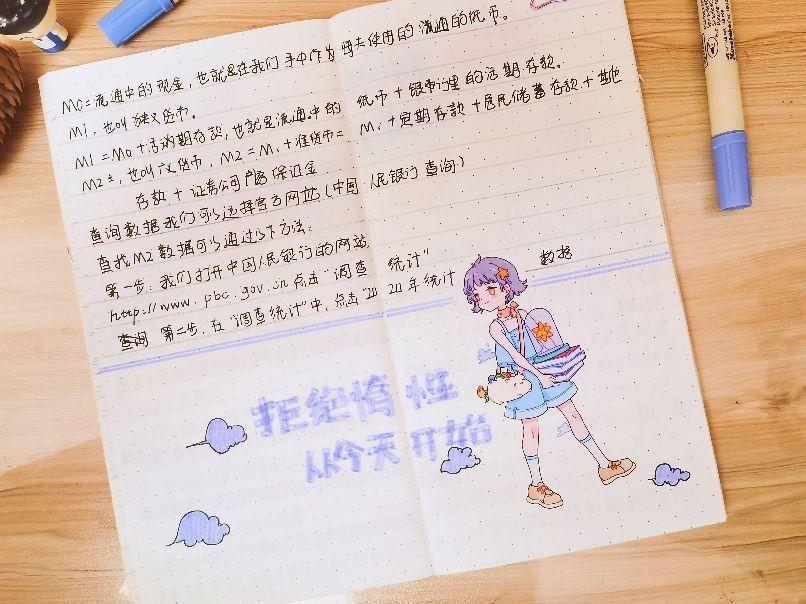 M0=流通中的现金，也就是在我们手中作为每天使用的流通的纸币。
M1，也叫狭义货币。
M1=M0+活期存款，也就是流通中的纸币+银行里的活期存款。
M2，也叫广义货币，M2=M1+准货币=M1+定期存款+居民储蓄存款+其他
存款+证券公司客户保证金
查询数据我们可以选择官方网站(中国人民银行查询)
查找M2数据可以通过以下方法：
第一步：我们打开中国人民银行的网站
http://www.pbc.gov.cn点击"调查统计"
查询 第二步，在"调查统计"中，点击"2020年统计数据
拒绝惰性
从今天开始